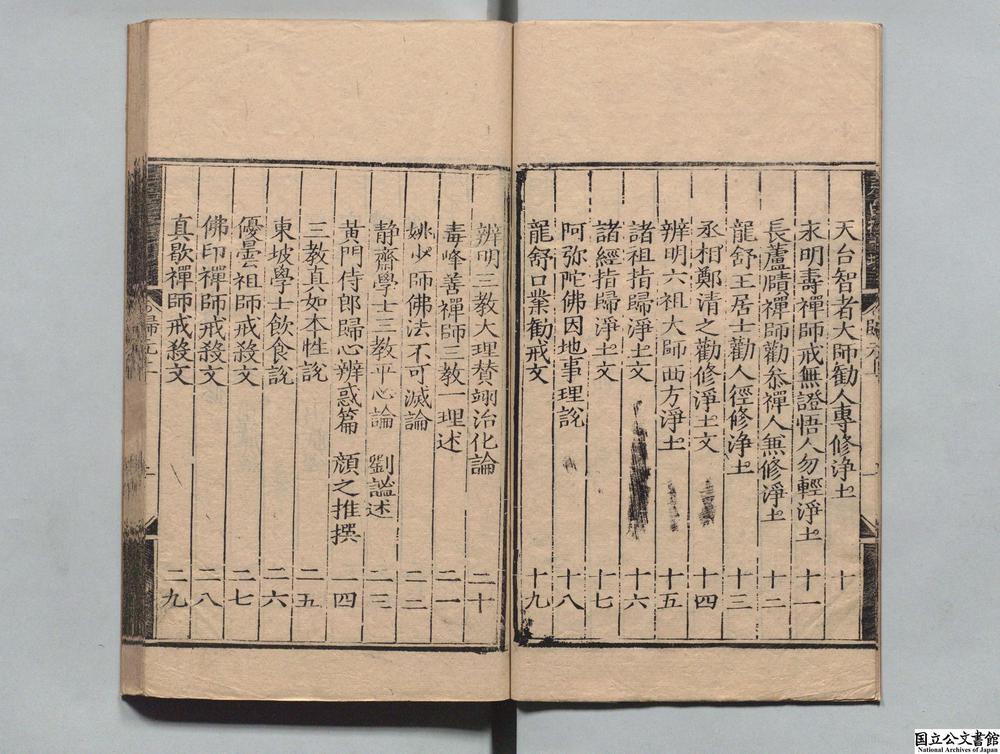 天台智者大師勸人專修淨土 十
永明壽禪師戒無證悟人勿輕淨土 十一
長蘆賾禪師勸叅禪人兼修淨土 十二
龍舒王居士勸人徑修淨土 十三
丞相鄭清之勸修淨土文 十四
辨明六祖大師西方淨土 十五
諸祖指歸淨土文 十六
諸經指歸淨土文 十七
阿弥陀佛因地事理說 十八
龍舒口業勸戒文 十九
辨明三教大理賛翊治化論 二十
毒峰善禪師三教一理述 二一
姚少師佛法不可滅論 二二
静齋學士三教平心論 劉謐述 二三
黃門侍郎歸心辨惑篇 顔之推撰 二四
三教真如本性說 二五
東坡學士飲食說 二六
優曇祖師戒殺文 二七
佛印禪師戒殺文 二八
真歇禪師戒殺文 二九
国立公文書館
National Archives of Japan